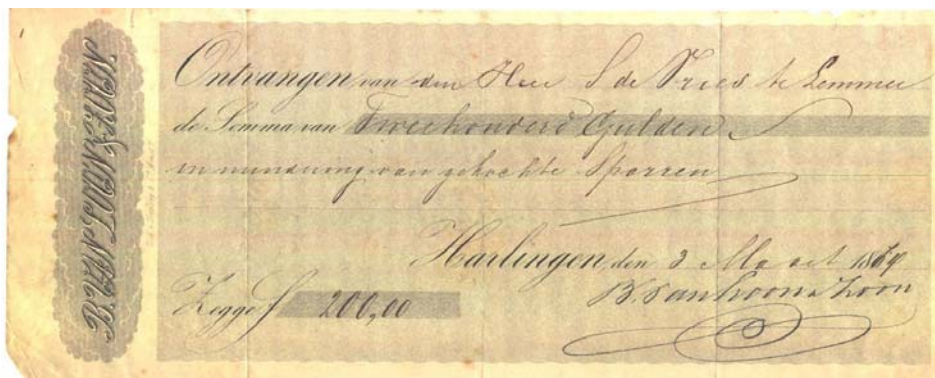 B. VAN LOON & ZOON
Ontvangen van den Heer S de Vries te Lemmer
de Somma van Tweehonderd Gulden
in mindering van gekochte Sparren
Harlingen, den 3 Maart 1869
Zegge f 200,00
B. van Loon & Zoon